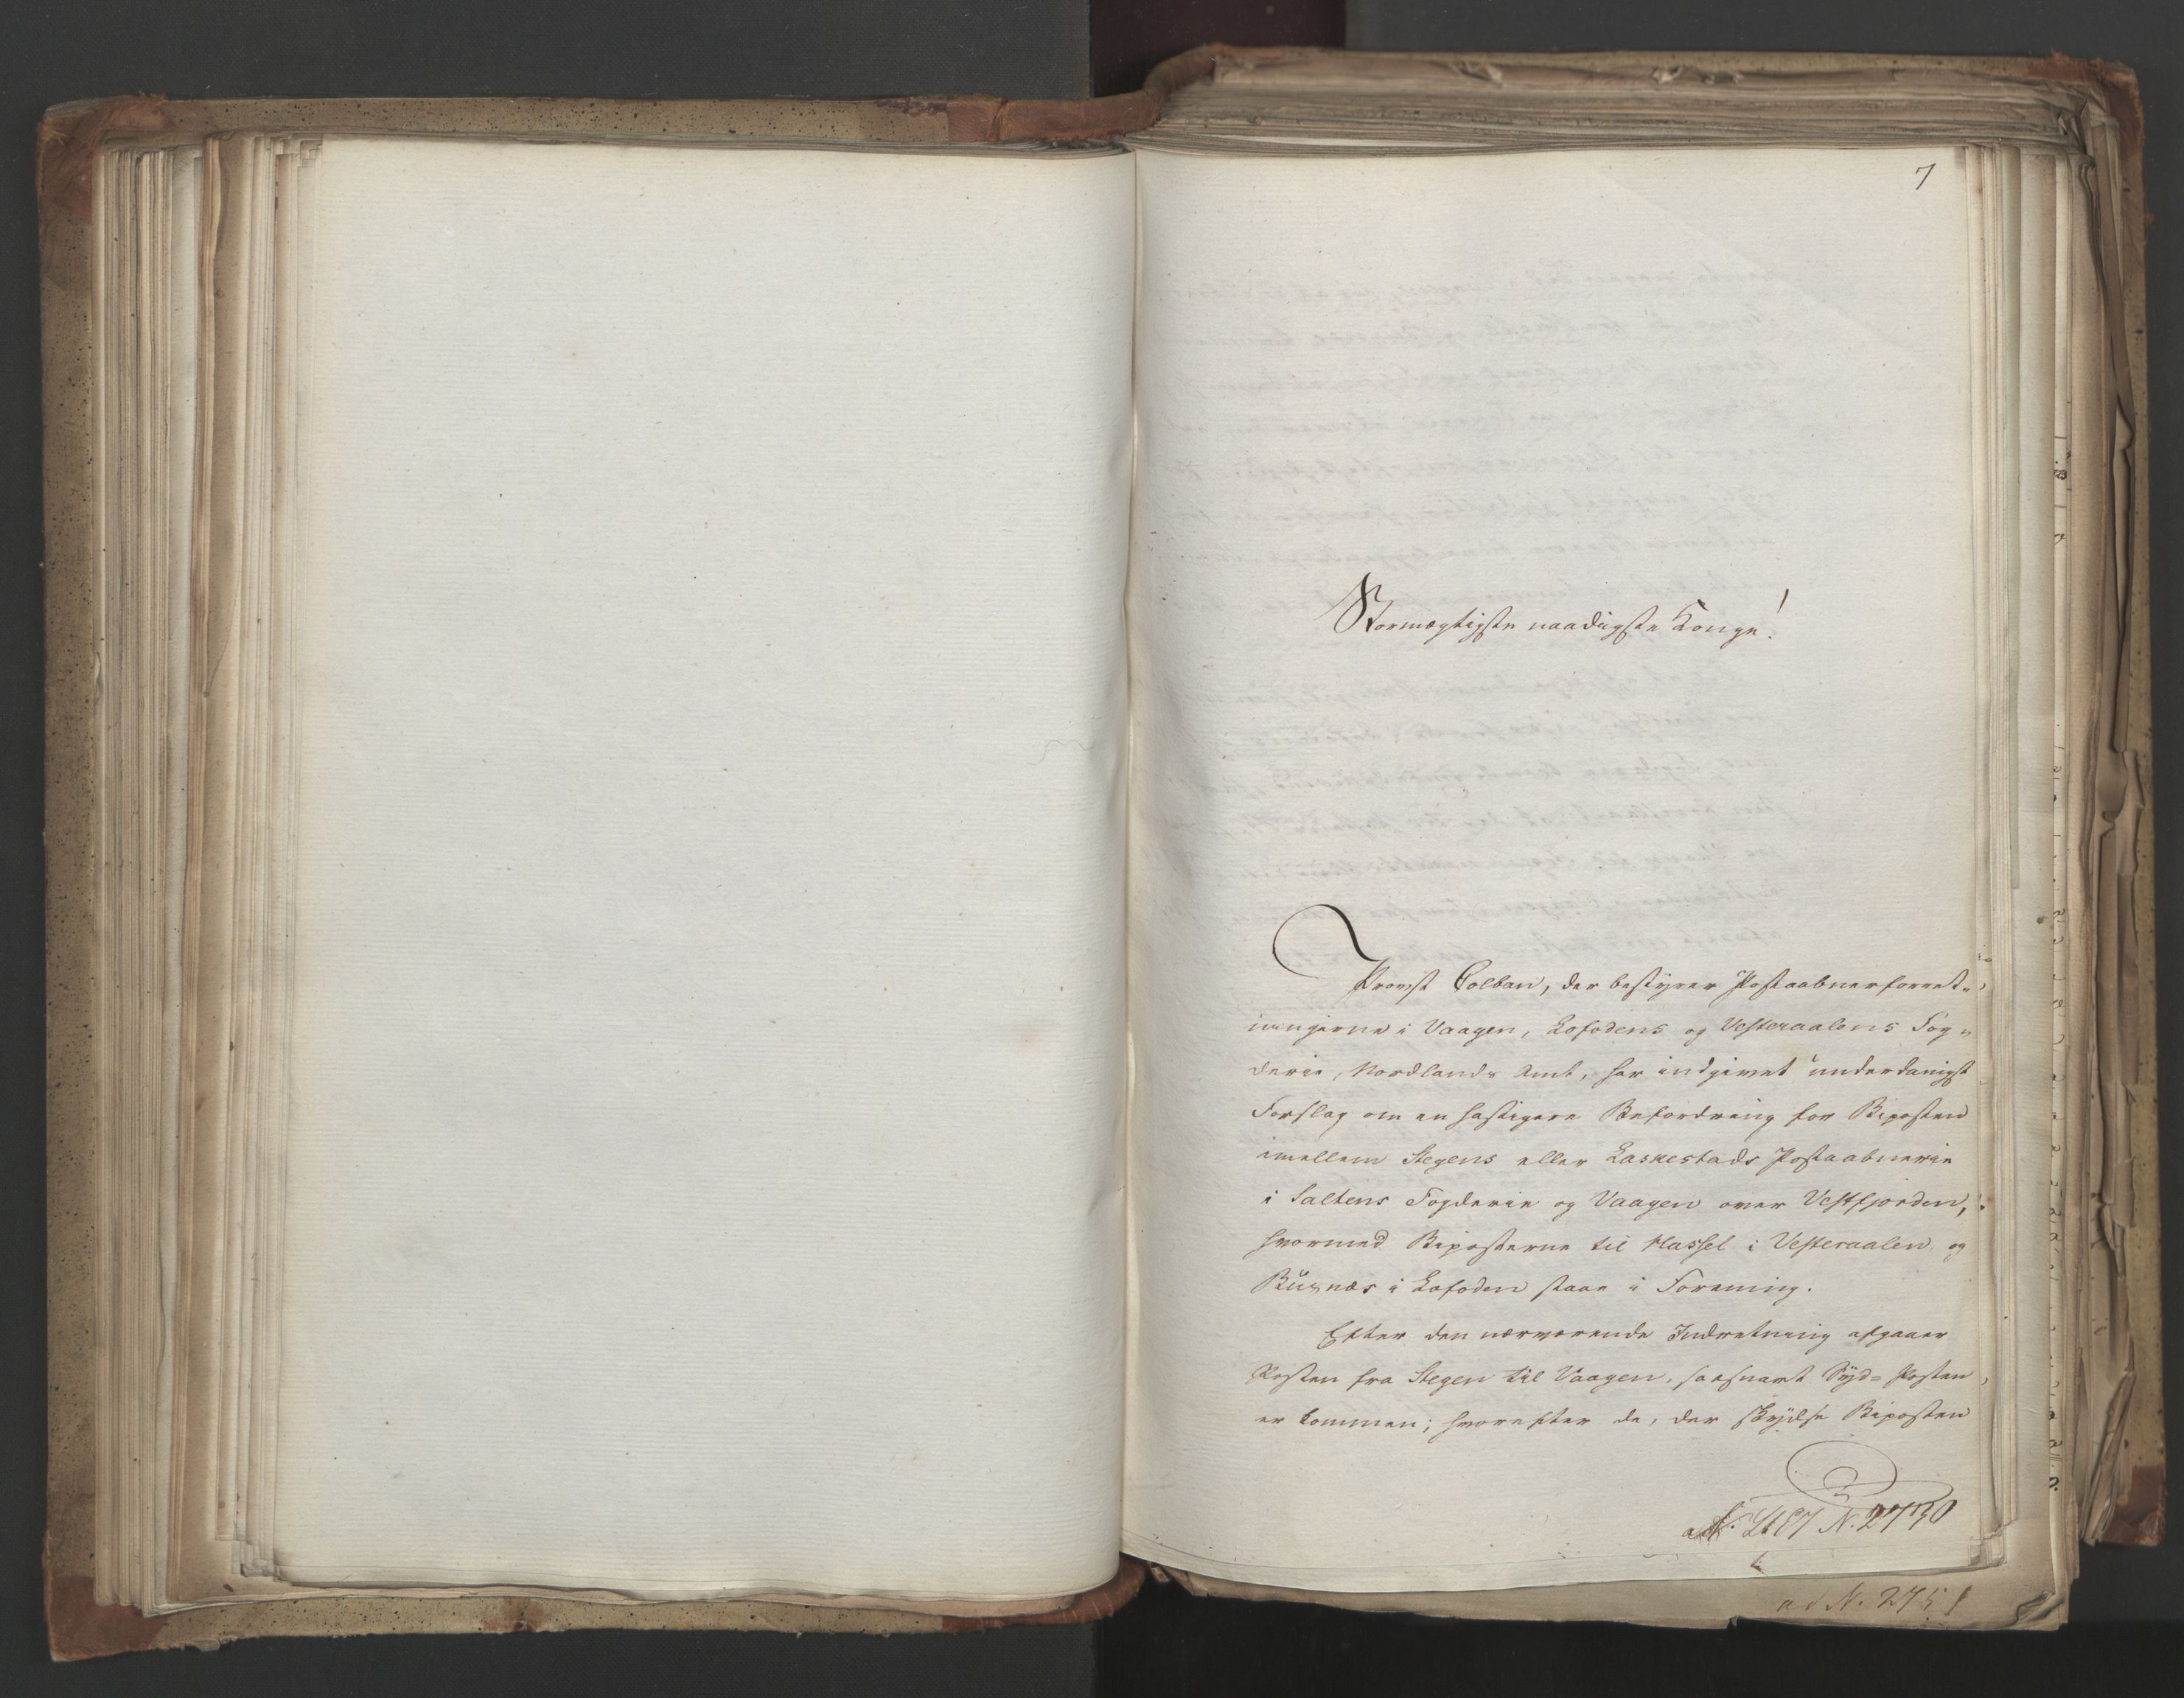 7
Stormægtigste naadigste Konge!
Provst Colban, der bestyrer Postaabnerforret-
ningerne i Vaagen, Lofodens og Vesteraalens Fog-
derie, Nordlands Amt, har indgivet underdanigst
Forslag om en hastigere Befordring for Biposten
imellem Stegens eller Laskestads Postaabnerie
i Saltens Fogderie og Vaagen over Vestfjorden,
hvormed Biposterne til Hassel i Vesteraalen og
Buxnæs i Lofoden staae i Forening.
Efter den nærværende Indretning afgaaer
Posten fra Stegen til Vaagen, saasnart Syd-Posten
er kommen; hvorefter de, der skydse Biposten
N. 2730
ad N. 2751